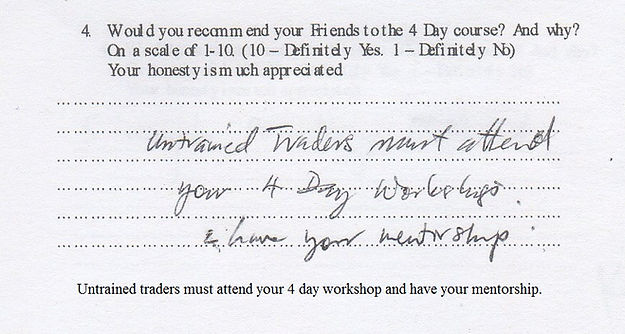 4. Would you recommend your Friends to the 4 Day course? And why?
On a scale of 1-10. (10 – Definitely Yes. 1 – Definitely No)
Your honesty is much appreciated
Untrained Traders must attend
your 4 Day Workshop.
& have your mentorship.
Untrained traders must attend your 4 day workshop and have your mentorship.